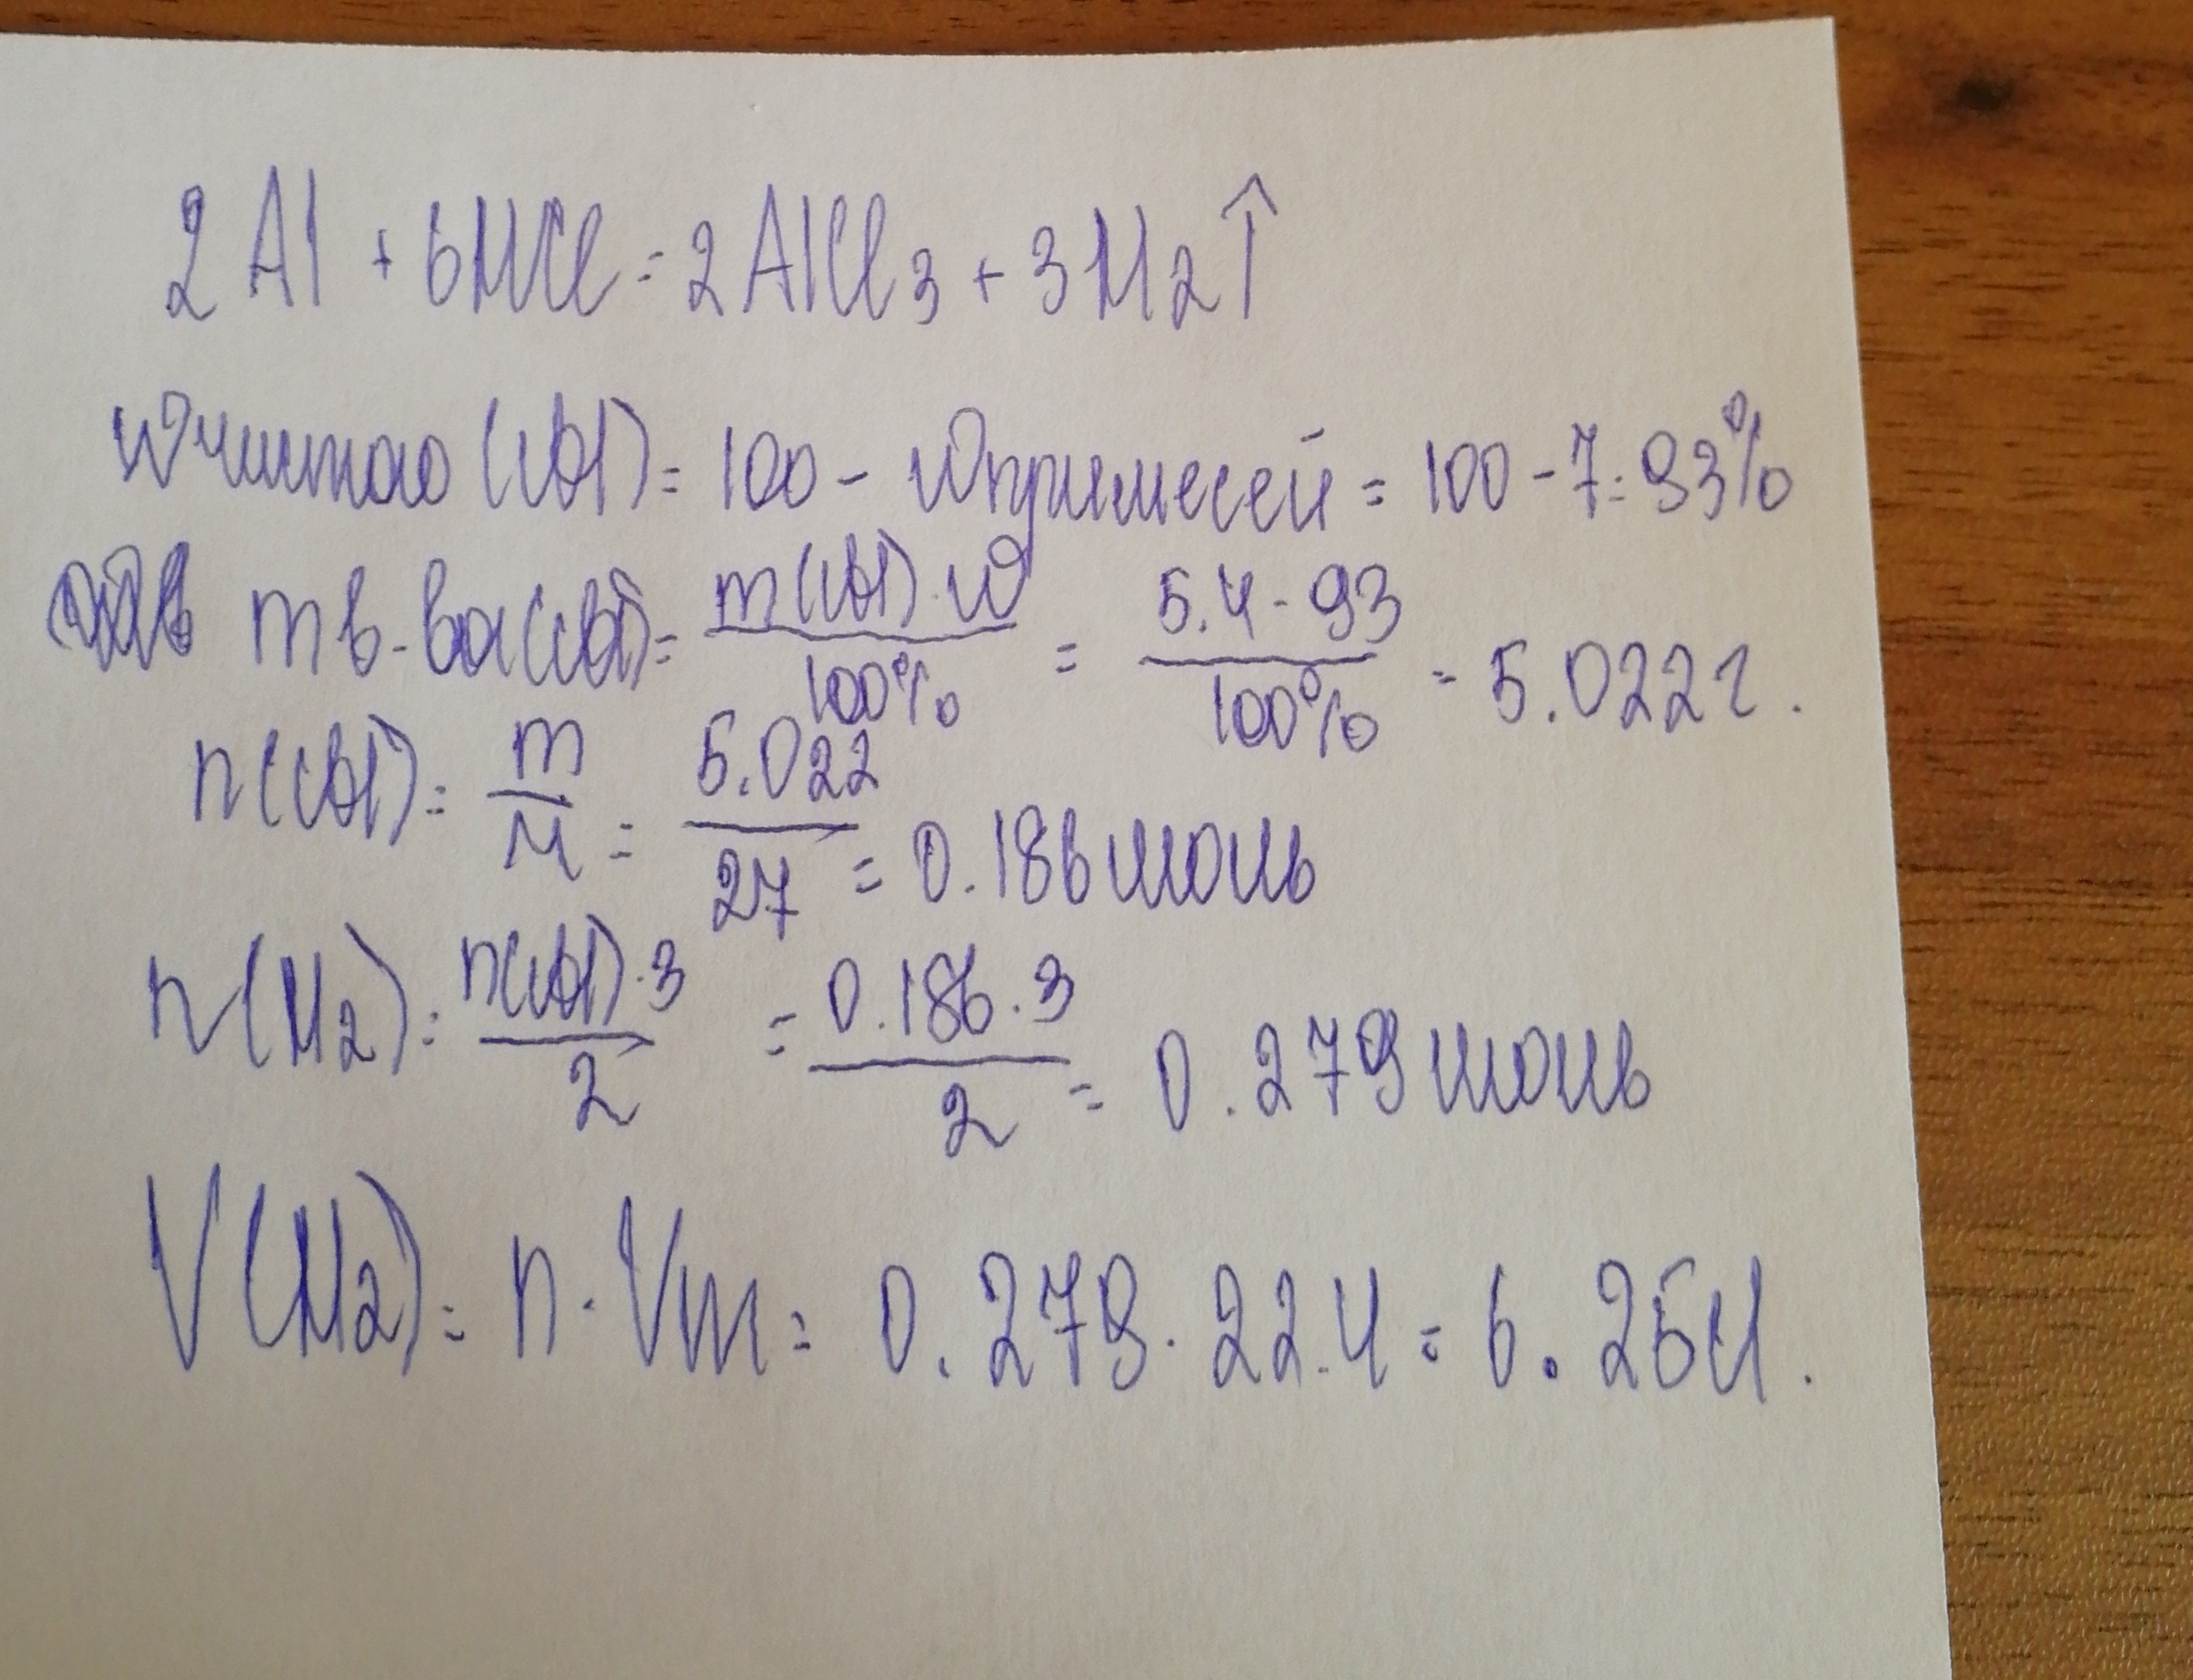 2Al + 6HCl = 2AlCl3 + 3H2↑
Wчистого (Al) = 100 - Wпримесей = 100 - 7 = 93%
m в-ва (Al) = m(Al) · W / 100% = 5.4 · 93 / 100% = 5.022 г.
n(Al) = m / M = 5.022 / 27 = 0.186 моль
n(H2) = n(Al) · 3 / 2 = 0.186 · 3 / 2 = 0.279 моль
V(H2) = n · Vm = 0.279 · 22.4 = 6.25 л.